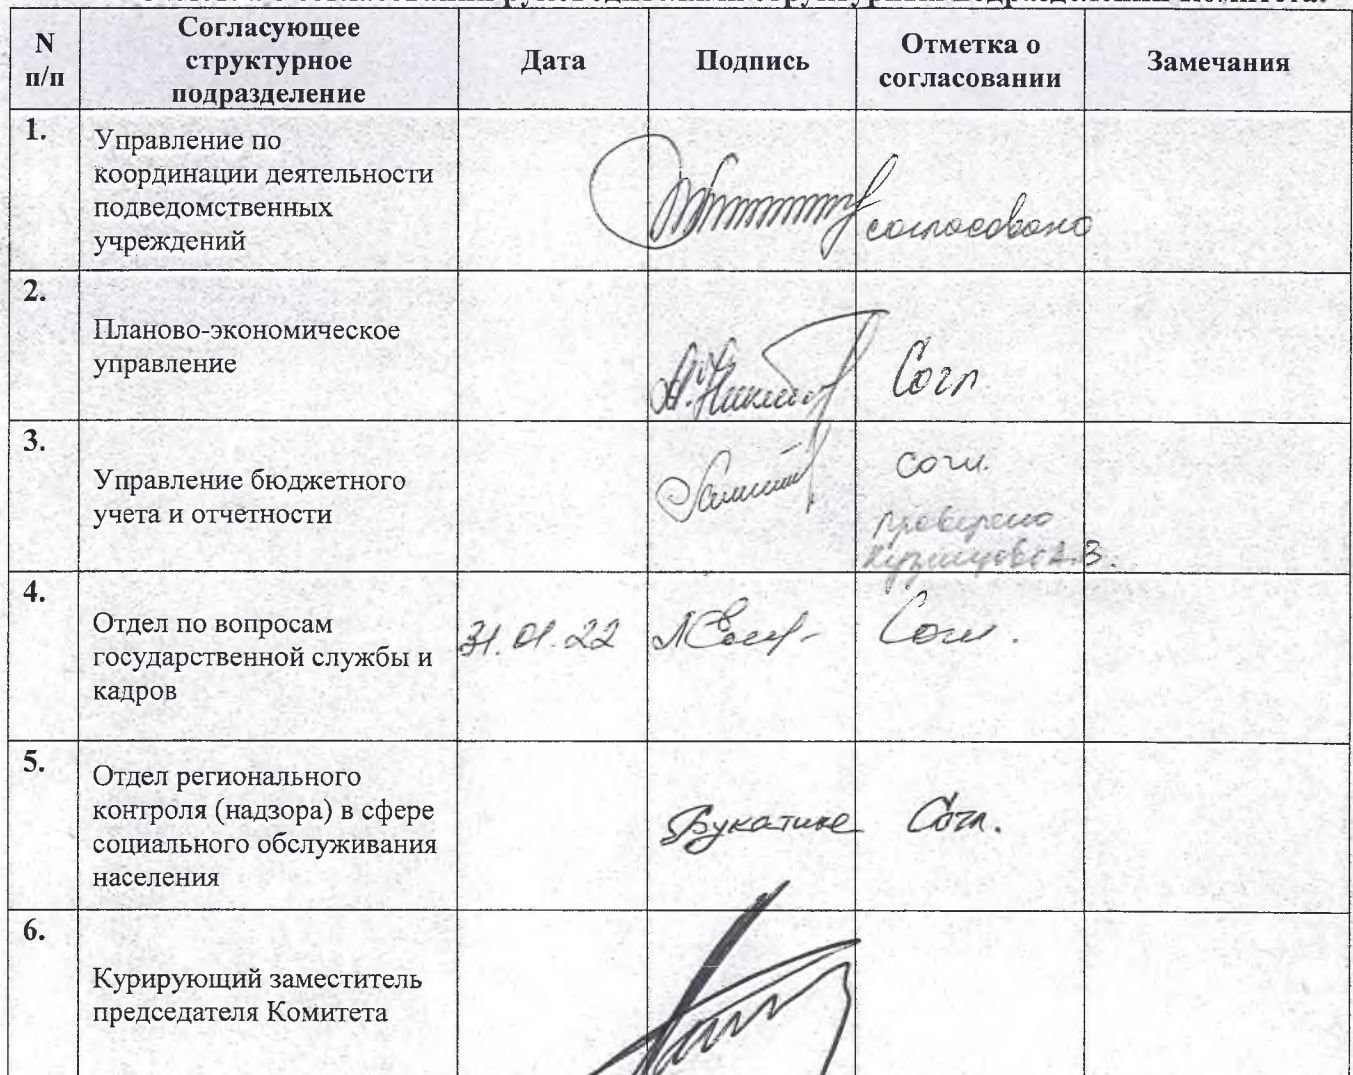 N
п/п
Согласующее
структурное
подразделение
Дата
Подпись
Отметка о
согласовании
Замечания
1.
Управление по
координации деятельности
подведомственных
учреждений
согласовано
2.
Планово-экономическое
управление
Согл
3.
Управление бюджетного
учета и отчетности
согл.
проверено
4.
Отдел по вопросам
государственной службы и
кадров
31.01.22
Согл.
5.
Отдел регионального
контроля (надзора) в сфере
социального обслуживания
населения
Согл.
6.
Курирующий заместитель
председателя Комитета